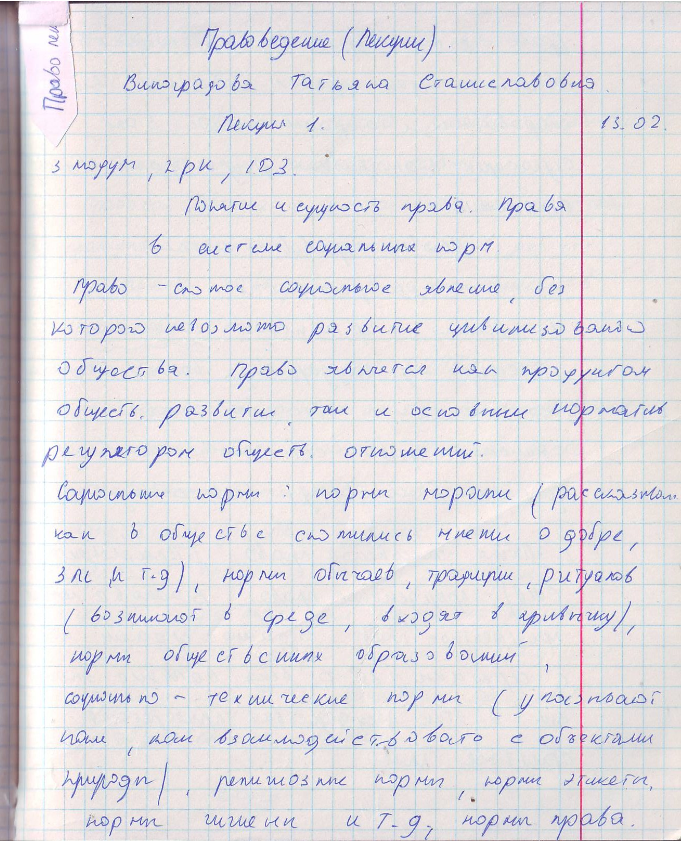 Право лек
Правоведение (Лекции).
Виноградова Татьяна Станиславовна.
Лекция 1. 13.02.
3 модуль, 2 рк, 1ДЗ.
Понятие и сущность права. Права
в системе социальных норм
Право - сложное социальное явление, без
которого невозможно развитие цивилизованного
общества. Право является как продуктом
обществ. развития, так и основным норматив
регулятором обществ. отношений.
Социальные нормы: нормы морали (рассказывают
как в обществе сложились мнения о добре,
зле и т.д), нормы обычаев, традиции, ритуалов
(возникают в среде, входят в привычку),
нормы общественных образований,
социально - технические нормы (указывают
нам, как взаимодействовать с объектами
природы), религиозные нормы, нормы этикета,
нормы гигиены и т.д., нормы права.